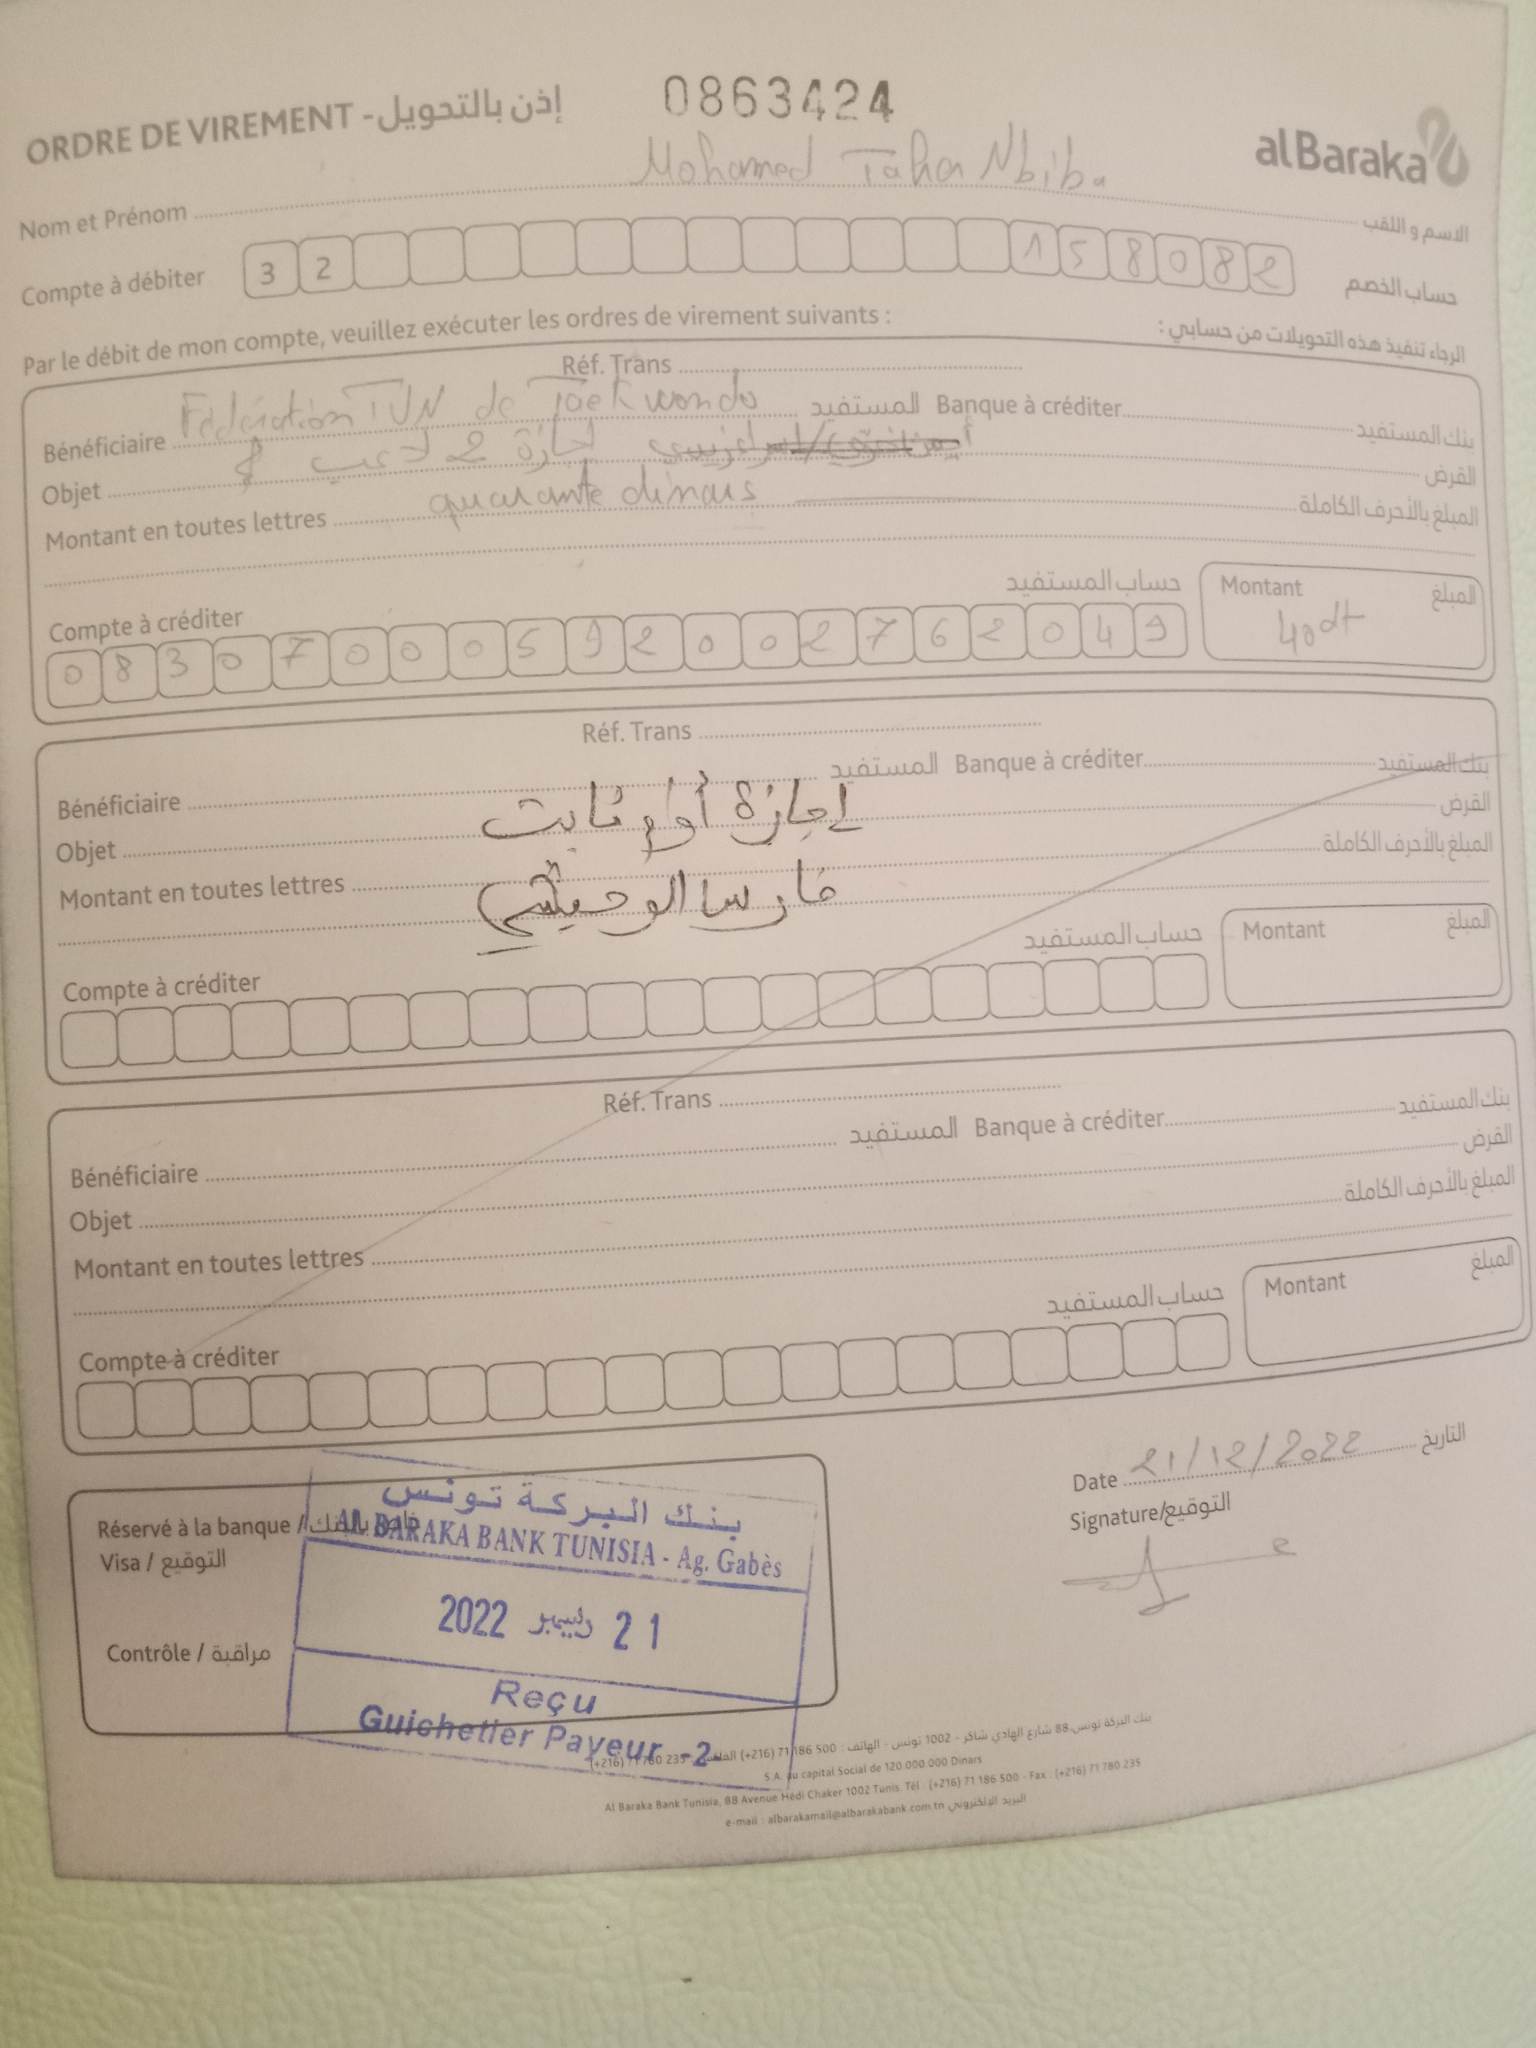 ORDRE DE VIREMENT - إذن بالتحويل
0863424
alBaraka
Nom et Prénom Mohamed Taha Nbiba الاسم و اللقب
Compte à débiter 3 2 1 5 8 0 8 2 حساب الخصم
Par le débit de mon compte, veuillez exécuter les ordres de virement suivants : الرجاء تنفيذ هذه التحويلات من حسابي :
Réf. Trans
Bénéficiaire Fédération TUN de Taekwondo المستفيد Banque à créditer بنك المستفيد
Objet إجازة 2 لاعب القرض
Montant en toutes lettres quarante dinars المبلغ بالأحرف الكاملة
Compte à créditer حساب المستفيد Montant المبلغ
0 8 3 0 7 0 0 0 5 9 2 0 0 2 7 6 2 0 4 9 40 dt
Réf. Trans
Bénéficiaire المستفيد Banque à créditer بنك المستفيد
Objet إجازة أولم ثابت القرض
Montant en toutes lettres فارس الوحيشي المبلغ بالأحرف الكاملة
Compte à créditer حساب المستفيد Montant المبلغ
Réf. Trans
Bénéficiaire المستفيد Banque à créditer بنك المستفيد
Objet القرض
Montant en toutes lettres المبلغ بالأحرف الكاملة
Compte à créditer حساب المستفيد Montant المبلغ
Date 21/12/2022 التاريخ
Signature/التوقيع
Réservé à la banque / خاص بالبنك
Visa / التوقيع
Contrôle / مراقبة
بنك البركة تونس
AL BARAKA BANK TUNISIA - Ag. Gabès
21 ديسمبر 2022
Reçu
Guichetier Payeur -2-
بنك البركة تونس، 88 شارع الهادي شاكر - 1002 تونس - الهاتف : 500 186 71 (216+) الفاكس : 235 780 71 (216+)
S.A. au capital Social de 120.000.000 Dinars
Al Baraka Bank Tunisia, 88 Avenue Hédi Chaker 1002 Tunis. Tél : (+216) 71 186 500 - Fax : (+216) 71 780 235
e-mail : albarakamail@albarakabank.com.tn البريد الإلكتروني